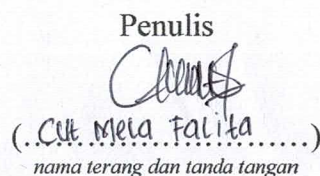 Penulis
(..Cut Mela Falita............)
nama terang dan tanda tangan